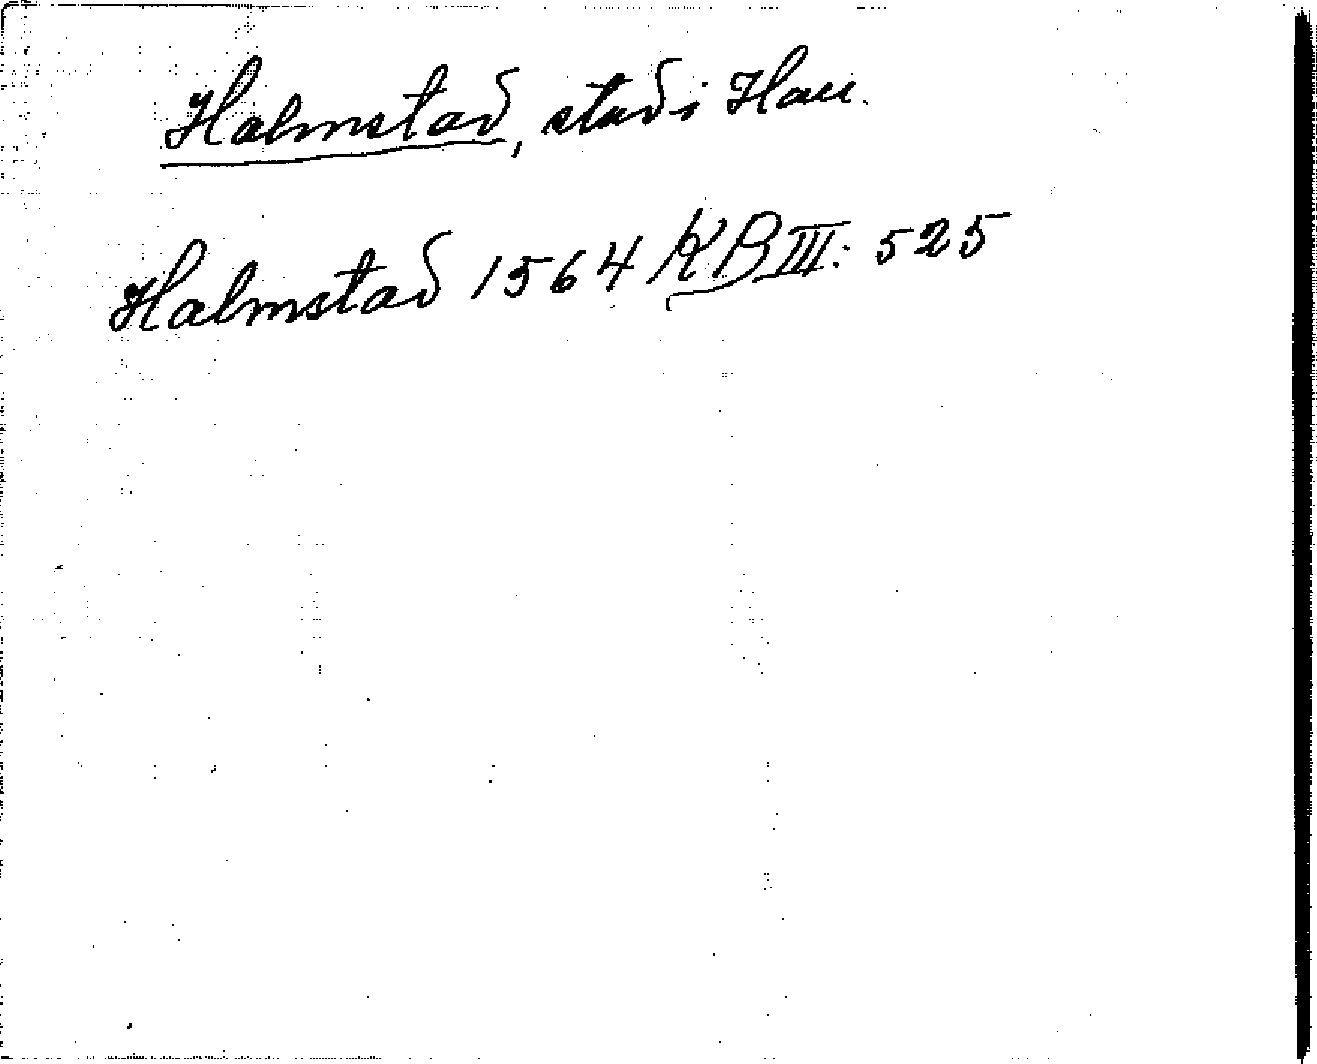 Halmstad, stad i Hall.
Halmstad 1564 KB III: 525